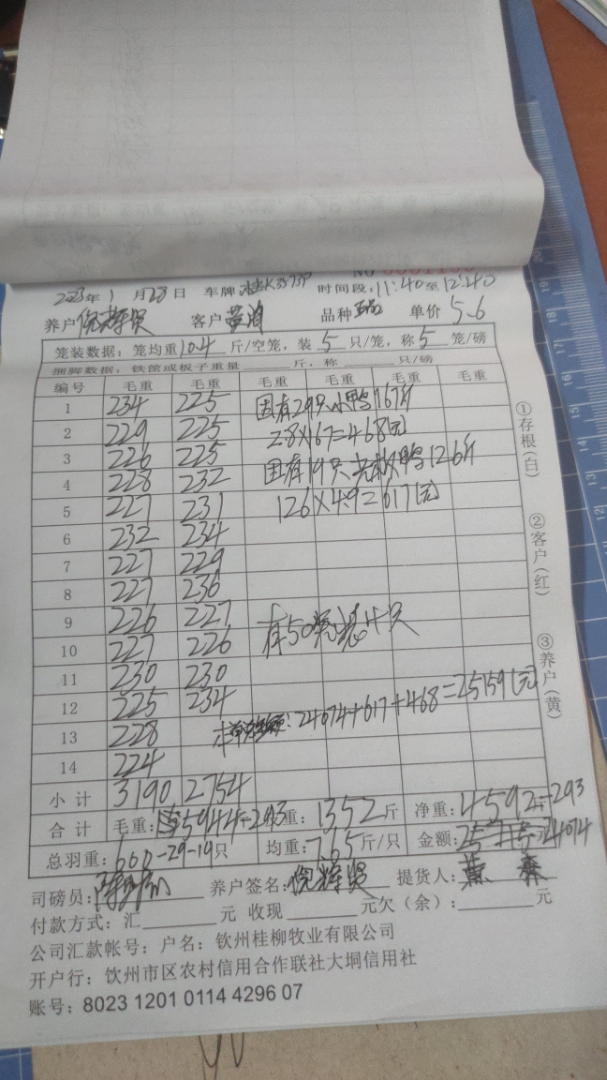 2023年1月28日 车牌 时间段:11:40至12:40
养户 倪辉贤 客户 黄 品种 单价 5.6
笼装数据:笼均重10.4斤/空笼,装5只/笼,称5笼/磅
捆脚数据:铁筐或板子重量 斤,称 只/磅
编号 毛重 毛重 毛重 毛重 毛重 毛重
1 234 225 因有29只小鸭167斤
2 229 225 2.8×167=468元
3 226 225
4 228 232 因有19只 鸭126斤
5 227 231 126×4.9=617元
6 232 234
7 227 229
8 227 236
9 226 227
10 227 226 有50 4只
11 230 230
12 225 234
13 228 24074+617+468=25159元
14 224
小计 3190 2754
合计 毛重:5944-293 重:1352斤 净重:4592-293
总羽重:600-29-19只 均重:7.65斤/只 金额: 24074
司磅员: 养户签名:倪辉贤 提货人:
付款方式:汇 元 收现 元欠(余): 元
公司汇款帐号:户名:钦州桂柳牧业有限公司
开户行:饮州市区农村信用合作联社大垌信用社
账号:8023 1201 0114 4296 07
①存根(白)
②客户(红)
③养户(黄)